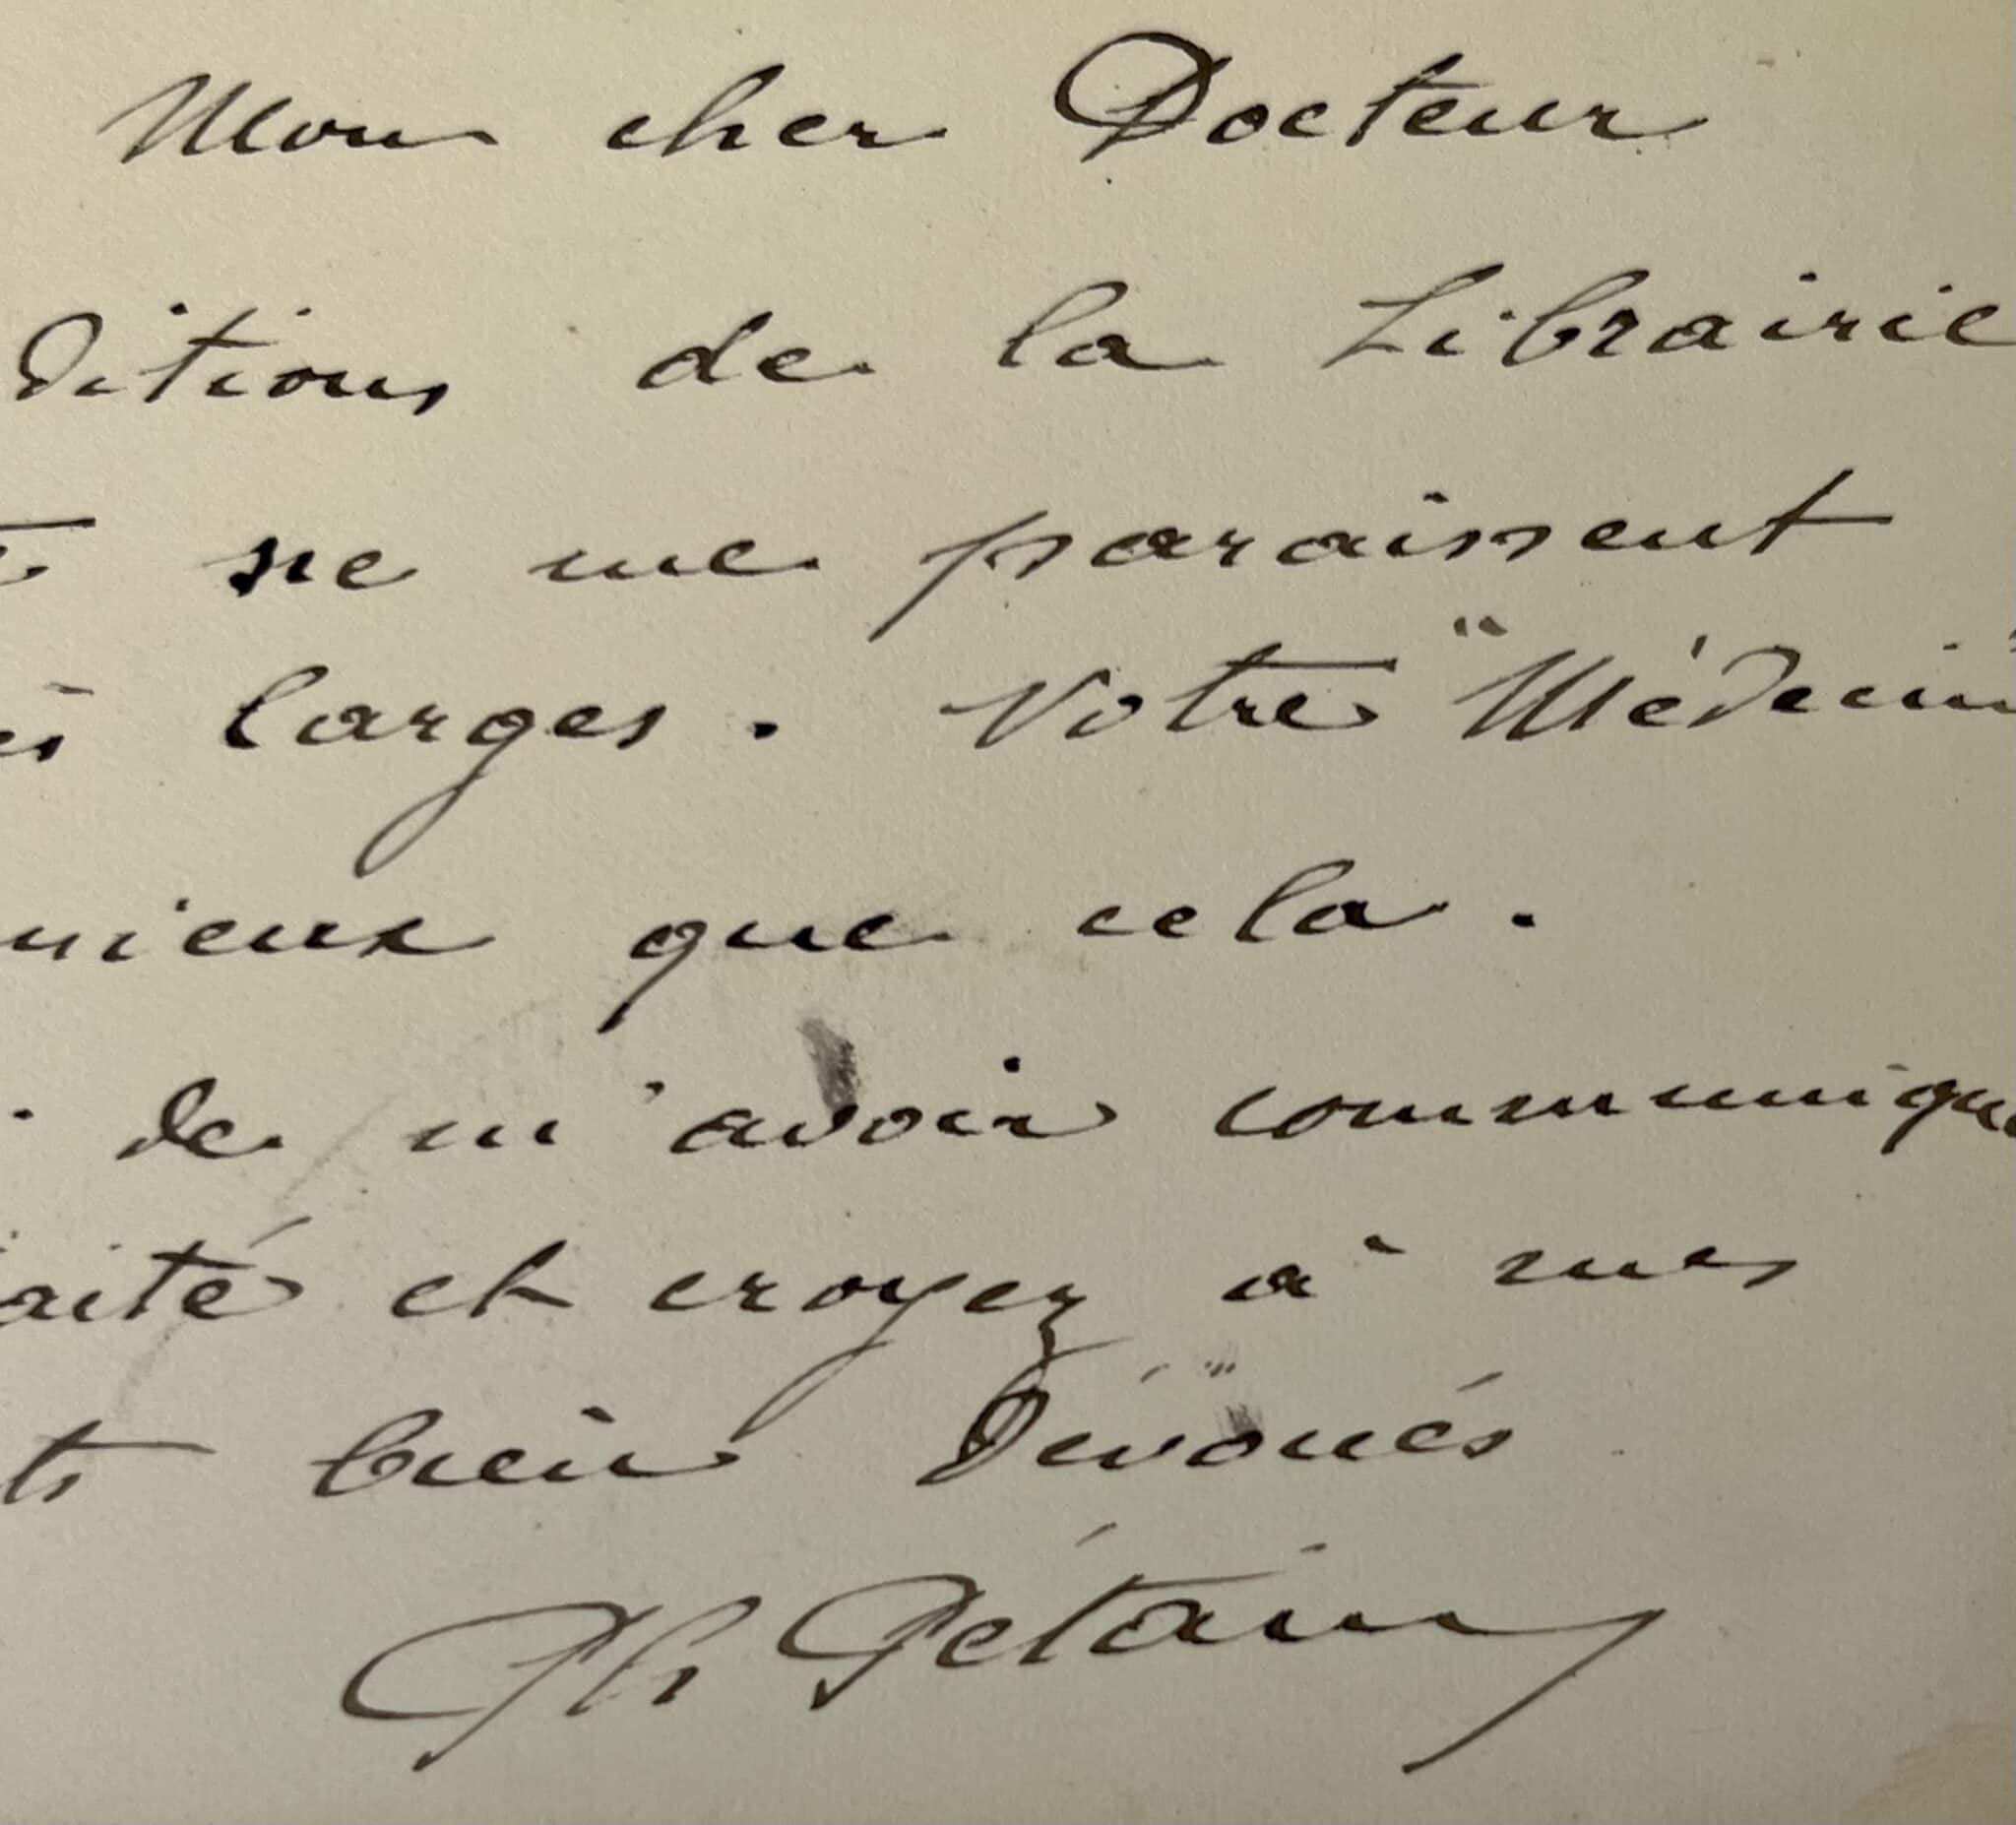 Mon cher Docteur
ditions de la Librairie
ne me paraissent
larges. Votre "Médecin
mieux que cela.
de m'avoir communiqu
aité et croyez à mes
ts bien dévoués
Ph Pétain